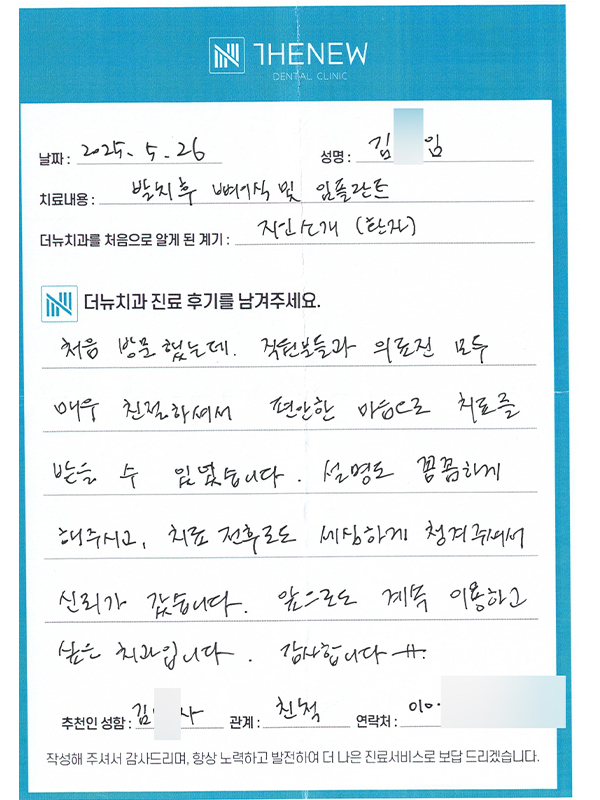 THENEW
DENTAL CLINIC
날짜 : 2025. 5. 26 성명 : 김 임
치료내용 : 발치후 뼈이식 및 임플란트
더뉴치과를 처음으로 알게 된 계기 : 지인소개 (환자)
더뉴치과 진료 후기를 남겨주세요.
처음 방문했는데. 직원분들과 의료진 모두
매우 친절하셔서 편안한 마음으로 치료를
받을 수 있었습니다. 설명도 꼼꼼하게
해주시고, 치료 전후로도 세심하게 챙겨주셔서
신뢰가 갔습니다. 앞으로도 계속 이용하고
싶은 치과입니다. 감사합니다
추천인 성함 : 김 사 관계 : 친척 연락처 : 010-
작성해 주셔서 감사드리며, 항상 노력하고 발전하여 더 나은 진료서비스로 보답 드리겠습니다.